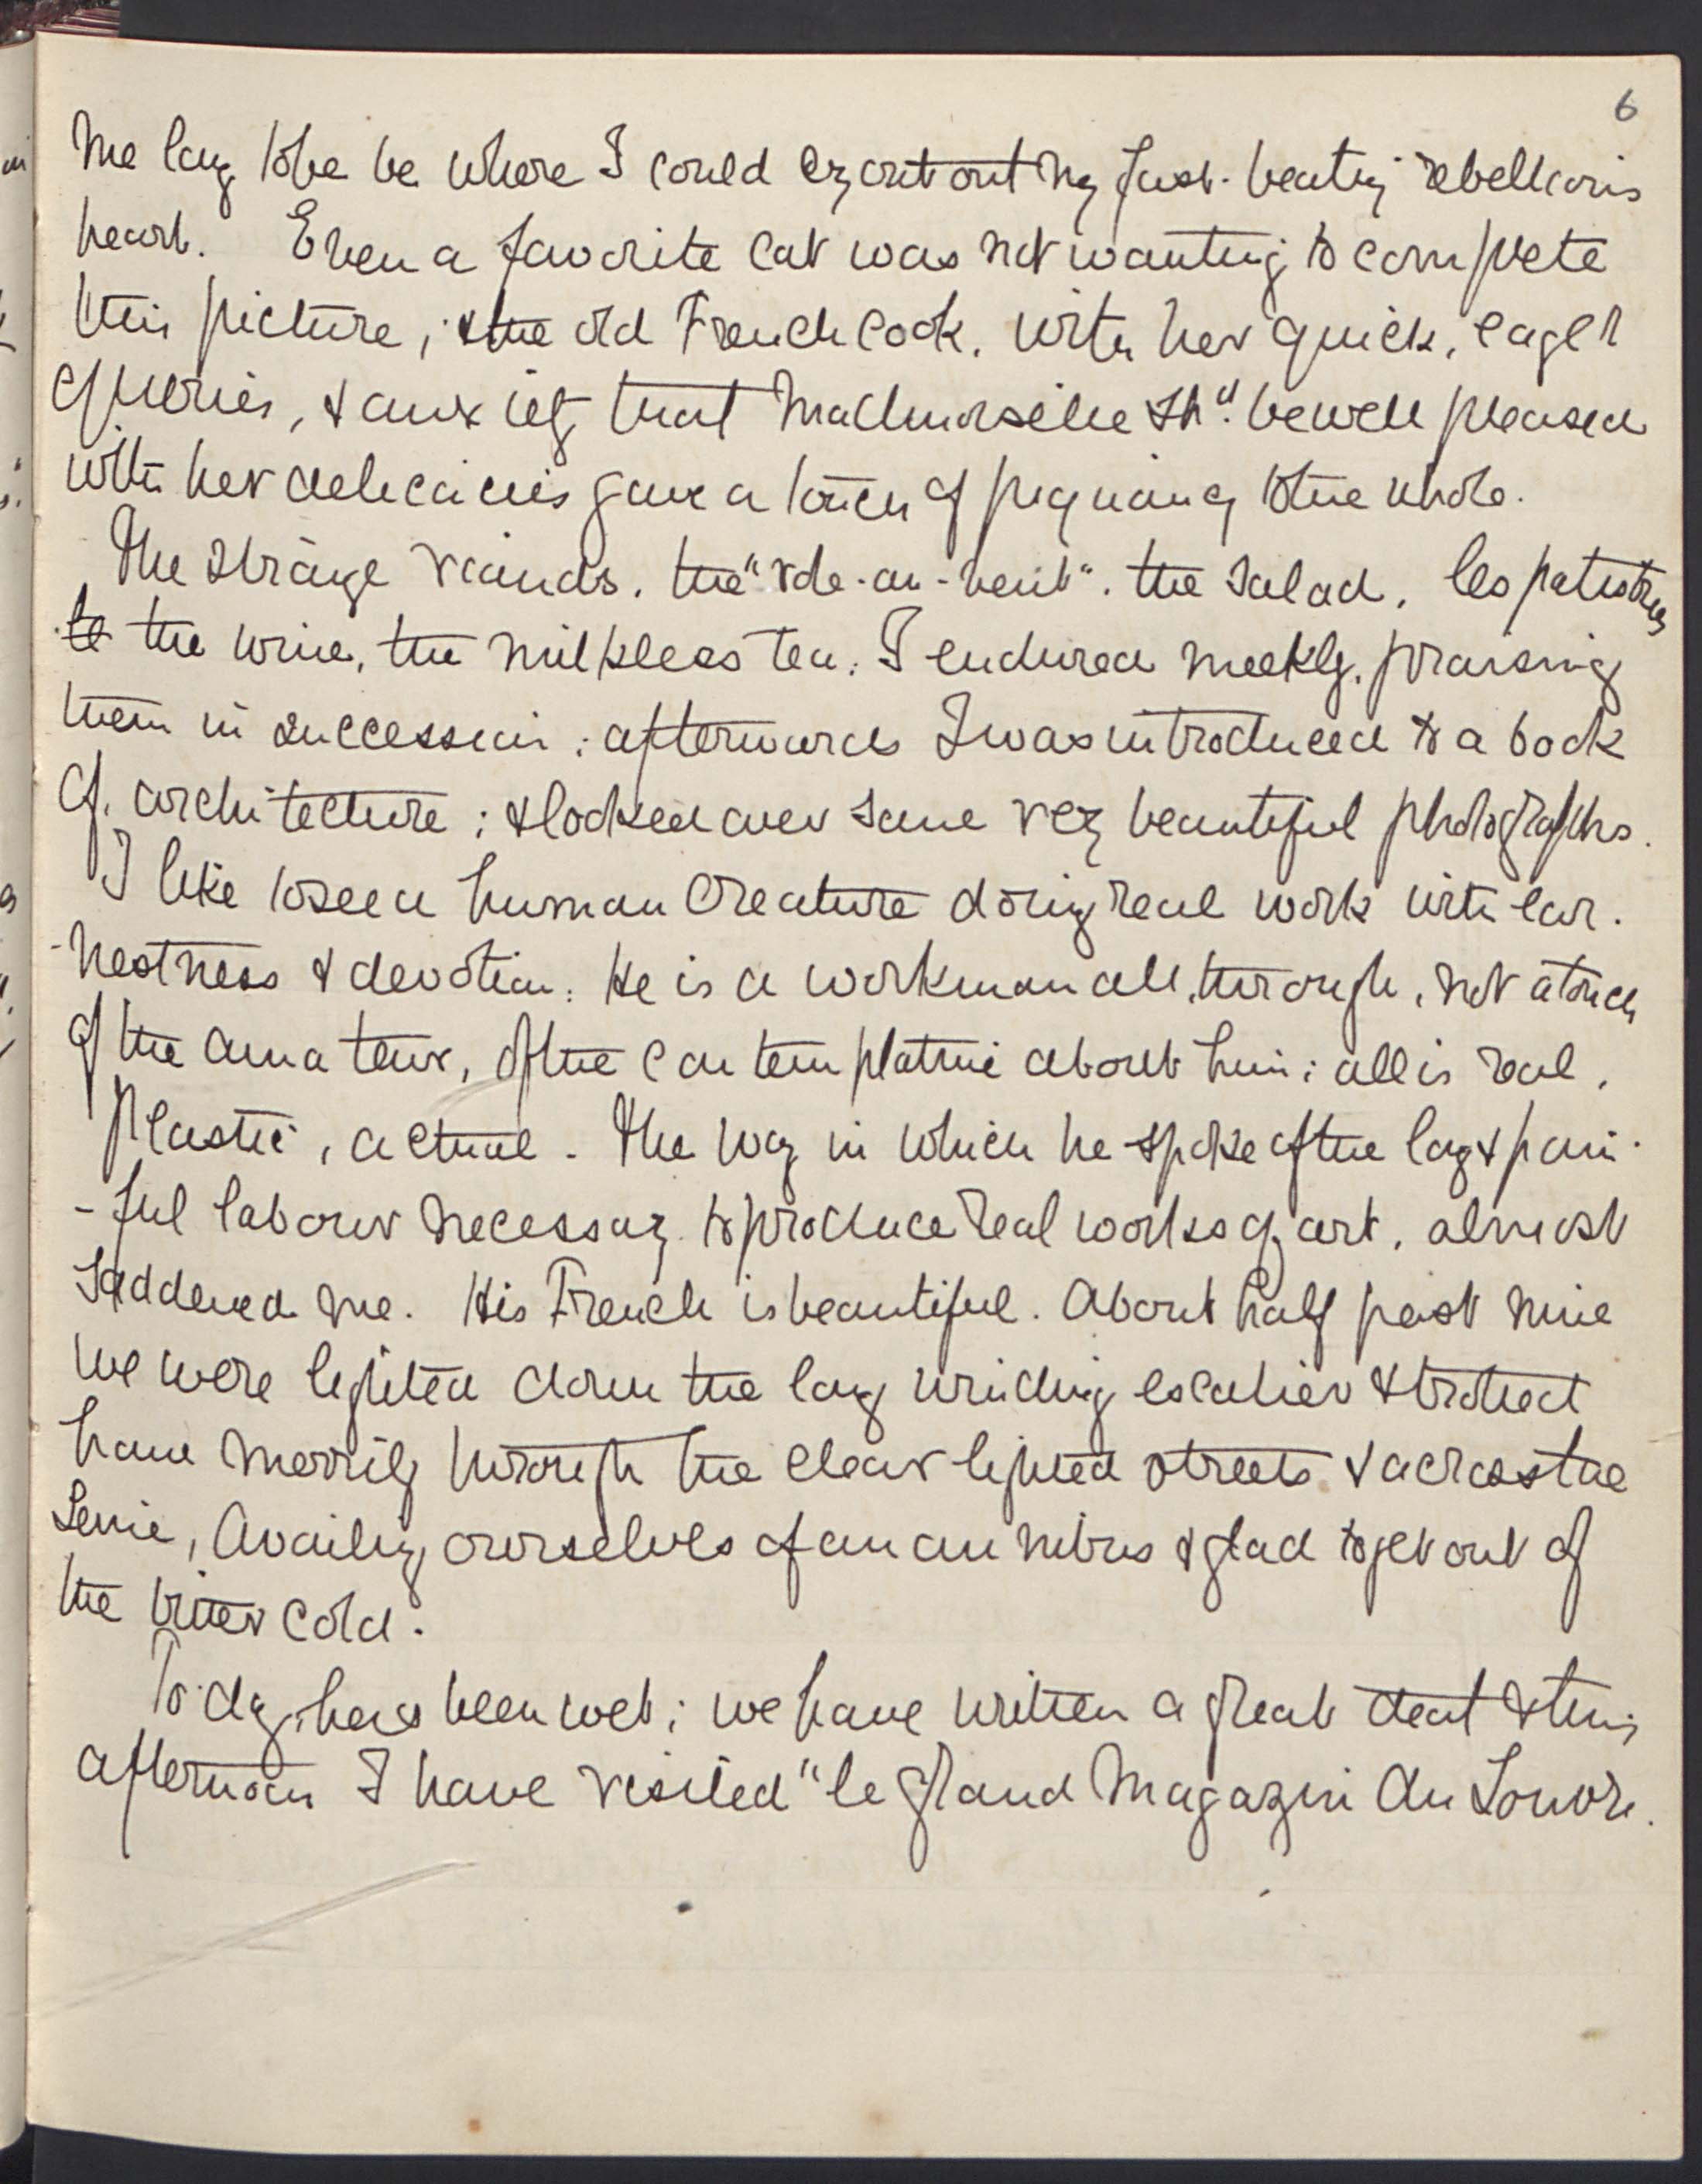 6
me long to be be where I could cry out out my fast-beating rebellious
heart. Even a favorite cat was not wanting to complete
this picture; & the old French cook, with her quick, eager
queries, & anxiety that Madmoiselle shd. be well pleased
with her delicacies gave a touch of piquancy to the whole.
The strange viands, the the salad, les
the wine, the milkless tea, I endured meekly, praising
them in succession; afterwards I was introduced to a book
of architecture; & looked over some very beautiful photographs.
I like to see a human creature doing real work with ear-
-nestness & devotion. He is a workman all through, not a touch
of the amateur, of the contemplative about him; all is real,
plastic, actual. The way in which he spoke of the long & pain-
-ful labour necessary to produce real works of art, almost
saddened me. His French is beautiful. About half past nine
we were lighted down the long winding escalier & trotted
home merrily through the clear lighted streets & across the
Seine, availing ourselves of an omnibus & glad to get out of
the bitter cold.
To-day has been wet; we have written a great deal & this
afternoon I have visited "le grand Magazin du Louvre.